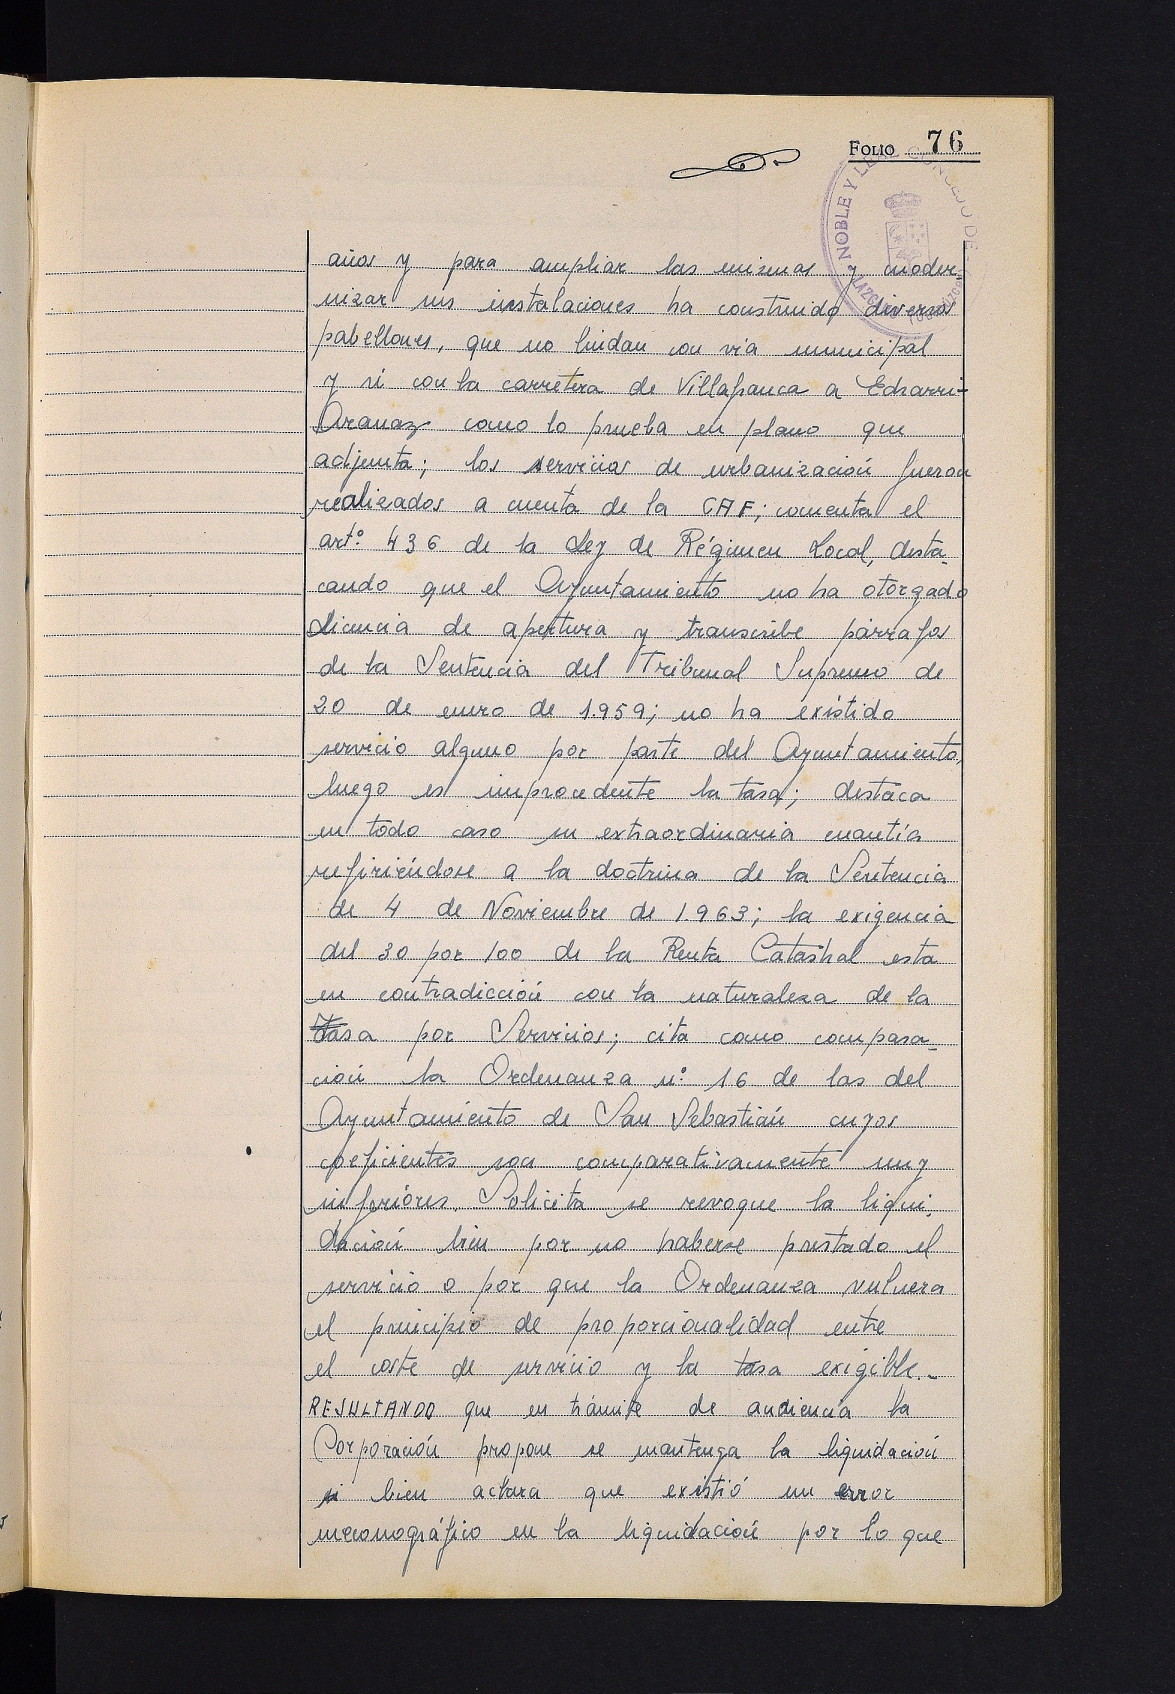 FOLIO 76
NOBLE Y LEAL CONCEJO DE
LAZCANO
años y para ampliar las mismas y moder-
nizar sus instalaciones ha construido diversos
pabellones, que no lindan con vía municipal
y si con la carretera de Villafranca a Echarri-
Aranaz como lo prueba en plano que
adjunta; los servicios de urbanización fueron
realizados a cuenta de la CAF; comenta el
artº 436 de la Ley de Régimen Local, desta-
cando que el Ayuntamiento no ha otorgado
Licencia de apertura y transcribe párrafos
de la Sentencia del Tribunal Supremo de
20 de enero de 1.959; no ha existido
servicio alguno por parte del Ayuntamiento,
luego es improcedente la tasa; destaca
en todo caso su extraordinaria cuantía
refiriéndose a la doctrina de la Sentencia
de 4 de Noviembre de 1.963; la exigencia
del 30 por 100 de la Renta Catastral esta
en contradicción con la naturaleza de la
Tasa por Servicios; cita como compara-
ción la Ordenanza nº 16 de las del
Ayuntamiento de San Sebastián cuyos
coeficientes son comparativamente muy
inferiores. Solicita se revoque la liqui-
dación bien por no haberse prestado el
servicio o por que la Ordenanza vulnera
el principio de proporcionalidad entre
el coste de servicio y la tasa exigible.-
RESULTANDO que en trámite de audiencia la
Corporación propone se mantenga la liquidación
si bien aclara que existió un error
mecanográfico en la liquidación por lo que